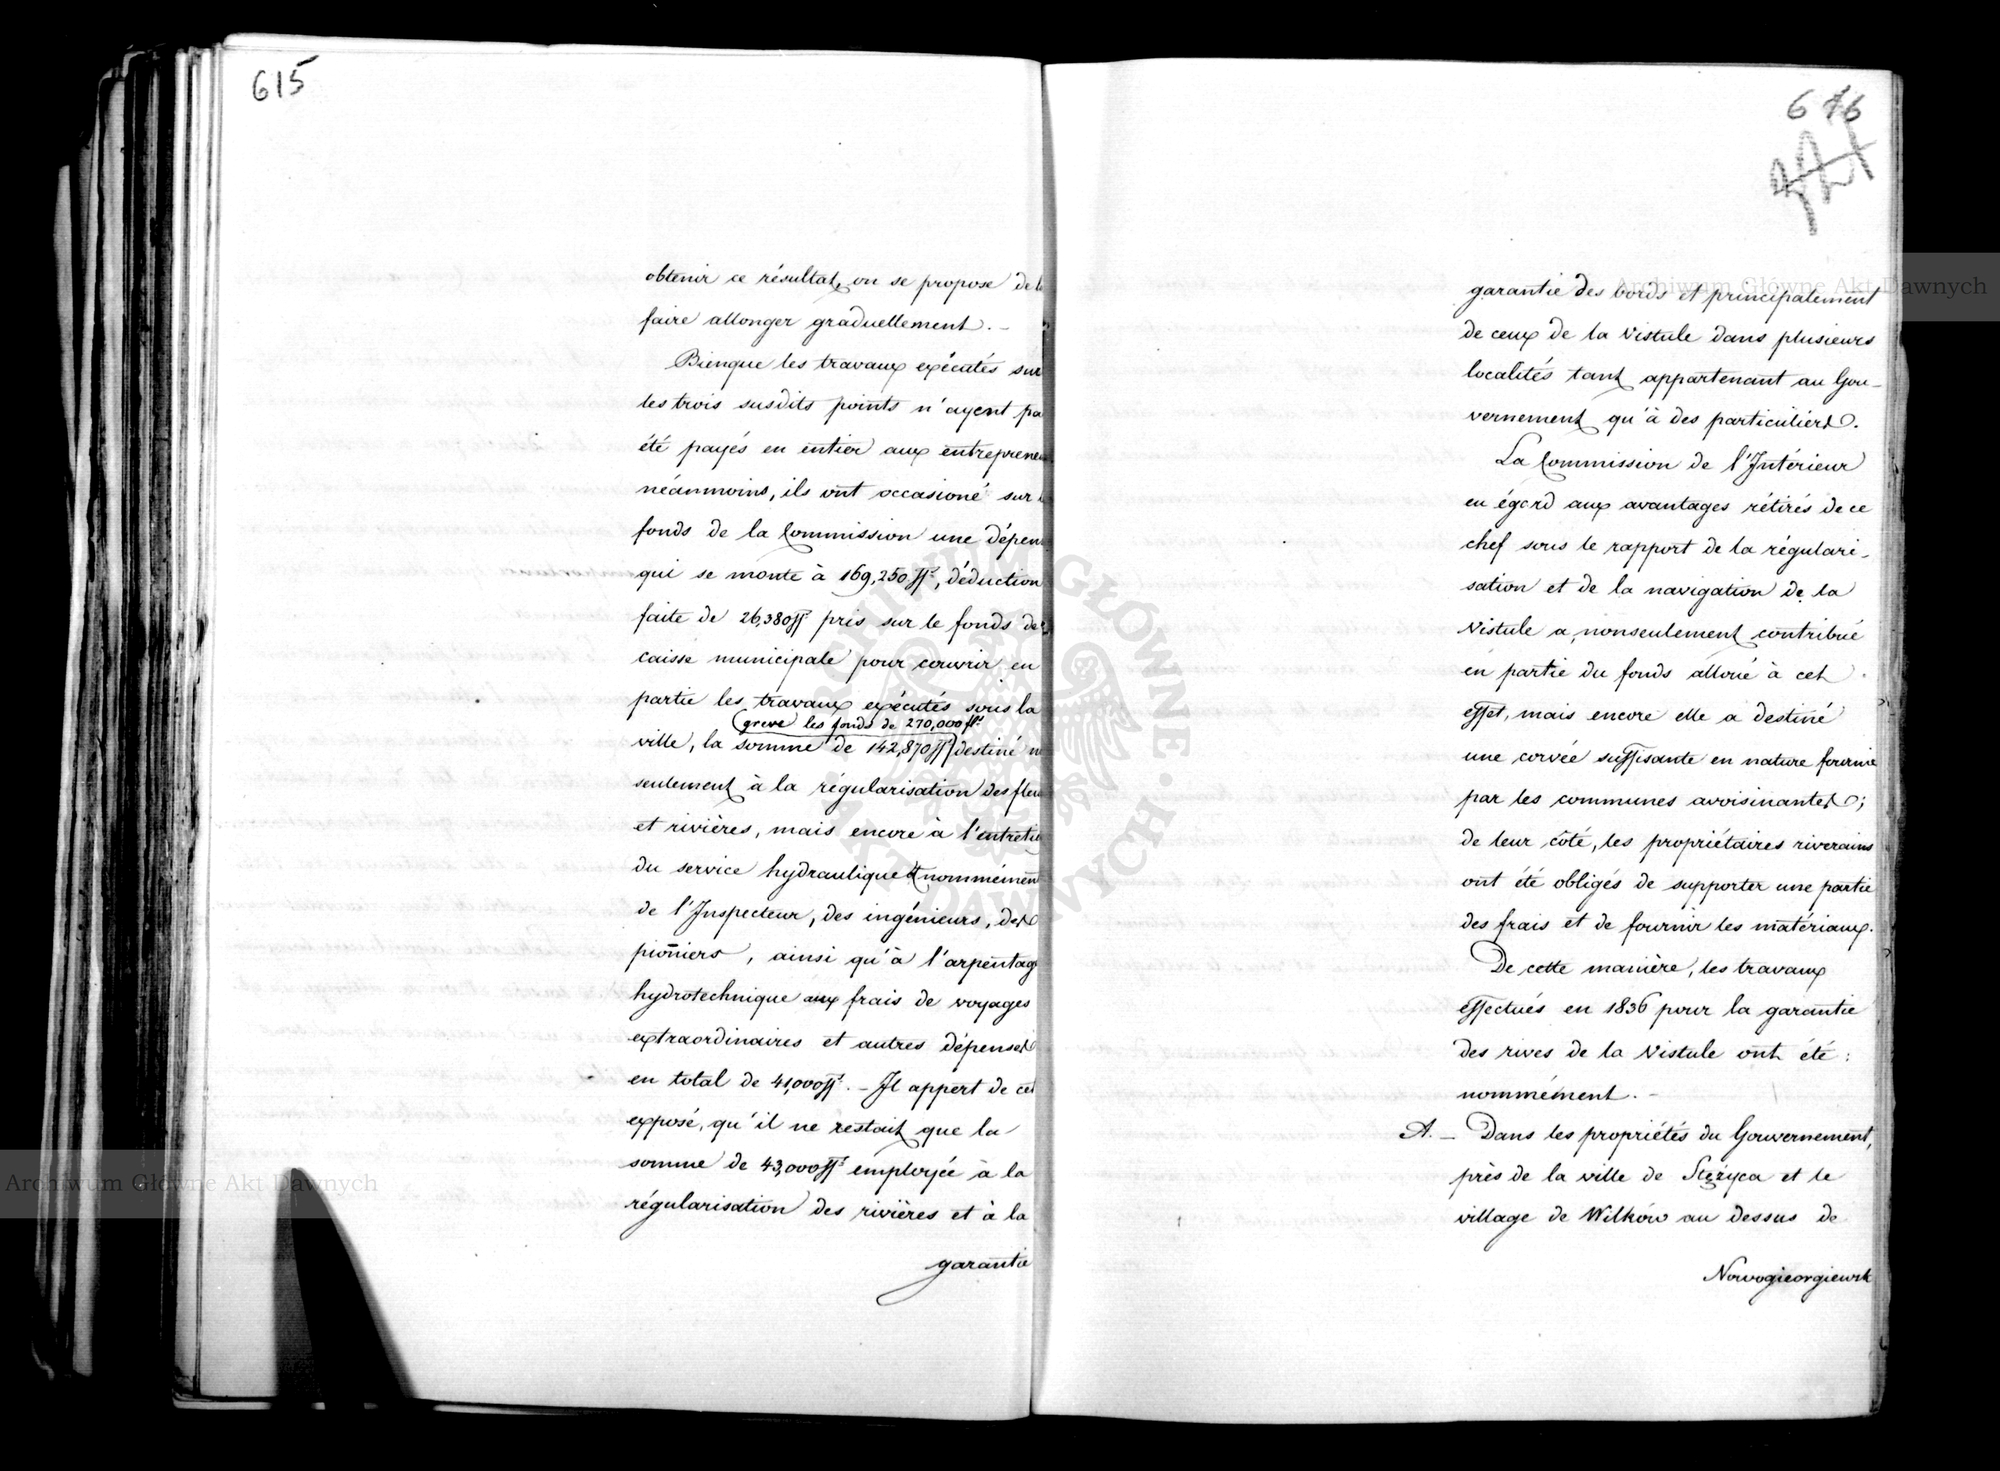 615
obtenir ce résultat, on se propose de le
faire allonger graduellement. –
Bienque les travaux exécutés sur
les trois susdits points n'ayent pa
été payés en entier aux entrepreneu
néanmoins, ils ont occasioné sur
fonds de la Commission une dépen
qui se monte à 169,250 ffs, déduction
faite de 26,380 ff pris sur le fonds de
caisse municipale pour couvrir en
partie les travaux exécutés sous la
(greve les fonds de 270,000 fls
ville, la somme de 142,870 ff) destiné
seulement à la régularisation des fleu
et rivières, mais encore à l'entretie
du service hydraulique et nommément
de l'Inspecteur, des ingénieurs, des
pioniers, ainsi qu'à l'arpentag
hydrotechnique aux frais de voyages
extraordinaires et autres dépenses
en total de 41,000 ffs. – Il appert de cet
exposé, qu'il ne restait que la
somme de 43,000 ffs employée à la
régularisation des rivières et à la
garantie
616
garantie des bords et principalement
de ceux de la Vistule dans plusieurs
localités tant appartenant au Gou-
vernement qu'à des particuliers.
La Commission de l'Intérieur
eu égard aux avantages rétirés de ce
chef sous le rapport de la régulari-
sation et de la navigation de la
Vistule a, nonseulement contribué
en partie du fonds alloué à cet
effet, mais encore elle a destiné
une corvée suffisante en nature fournie
par les communes avoisinantes;
de leur côté, les propriétaires riverains
ont été obligés de supporter une partie
des frais et de fournir les matériaux.
De cette manière, les travaux
effectués en 1836 pour la garantie
des rives de la Vistule ont été:
nommément. –
A. – Dans les propriétés du Gouvernement,
près de la ville de Stężyca et le
village de Wilków au dessus de
Nowogieorgiewsk
Archiwum Główne Akt Dawnych
Archiwum Główne Akt Dawnych
ARCHIWUM GŁÓWNE AKT DAWNYCH